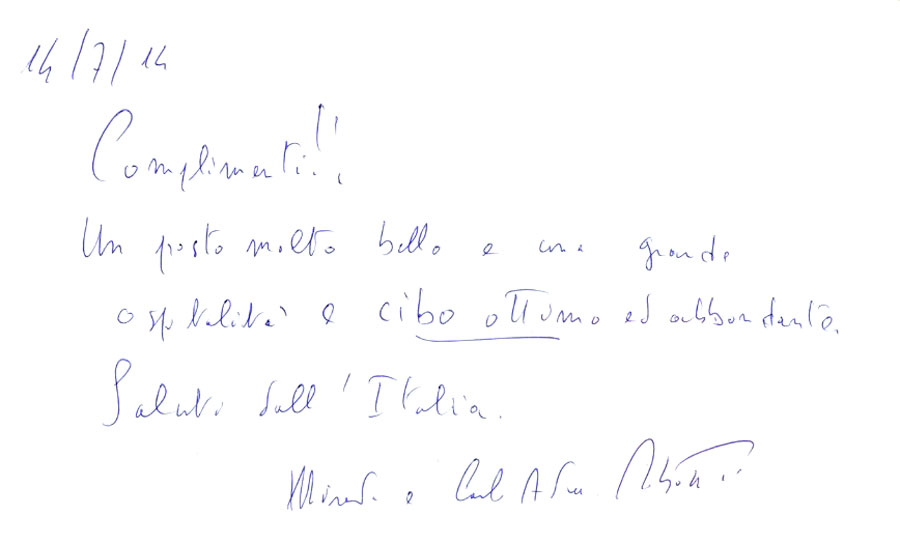 14/7/14
Complimenti!!
Un posto molto bello e una grande
ospitalità e cibo ottimo ed abbondante.
Saluti dall'Italia.
e